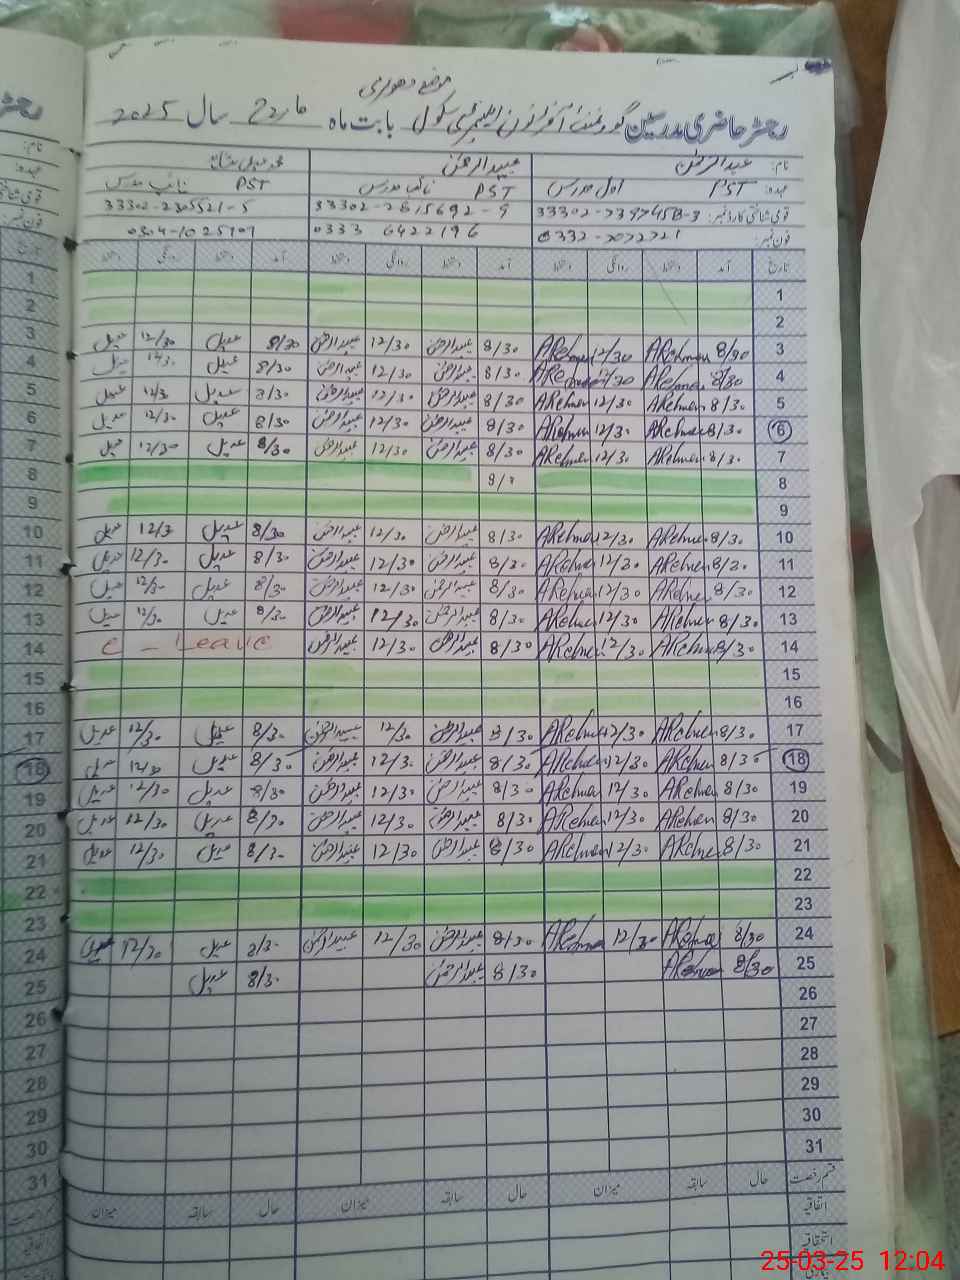 موضع دھوری
رجسٹر حاضری مدرسین گورنمنٹ سکول بابت ماہ مارچ سال 2025
نام: عبدالرحمٰن عبیدالرحمٰن
عہدہ: PST اول مدرس PST نائب مدرس PST نائب مدرس
قومی شناختی کارڈ نمبر: 33302-2815692-9 33302-2305521-5
فون نمبر: 0332-7072721 0333 6422196 0304-1025707
تاریخ آمد دستخط روانگی دستخط آمد دستخط روانگی دستخط آمد دستخط روانگی دستخط
1
2
3 8/30 ARehman 12/30 ARehman 8/30 عبیدالرحمٰن 12/30 عبیدالرحمٰن 8/30 عدیل 12/30 عدیل
4 8/30 ARehman 12/30 ARehman 8/30 عبیدالرحمٰن 12/30 عبیدالرحمٰن 8/30 عدیل 12/30 عدیل
5 8/30 ARehman 12/30 ARehman 8/30 عبیدالرحمٰن 12/30 عبیدالرحمٰن 8/30 عدیل 12/30 عدیل
6 8/30 ARehman 12/30 ARehman 8/30 عبیدالرحمٰن 12/30 عبیدالرحمٰن 8/30 عدیل 12/30 عدیل
7 8/30 ARehman 12/30 ARehman 8/30 عبیدالرحمٰن 12/30 عبیدالرحمٰن 8/30 عدیل 12/30 عدیل
8
9
10 8/30 ARehman 12/30 ARehman 8/30 عبیدالرحمٰن 12/30 عبیدالرحمٰن 8/30 عدیل 12/30 عدیل
11 8/30 ARehman 12/30 ARehman 8/30 عبیدالرحمٰن 12/30 عبیدالرحمٰن 8/30 عدیل 12/30 عدیل
12 8/30 ARehman 12/30 ARehman 8/30 عبیدالرحمٰن 12/30 عبیدالرحمٰن 8/30 عدیل 12/30 عدیل
13 8/30 ARehman 12/30 ARehman 8/30 عبیدالرحمٰن 12/30 عبیدالرحمٰن 8/30 عدیل 12/30 عدیل
14 8/30 ARehman 12/30 ARehman 8/30 عبیدالرحمٰن 12/30 عبیدالرحمٰن C - Leave
15
16
17 8/30 ARehman 12/30 ARehman 8/30 عبیدالرحمٰن 12/30 عبیدالرحمٰن 8/30 عدیل 12/30 عدیل
18 8/30 ARehman 12/30 ARehman 8/30 عبیدالرحمٰن 12/30 عبیدالرحمٰن 8/30 عدیل 12/30 عدیل
19 8/30 ARehman 12/30 ARehman 8/30 عبیدالرحمٰن 12/30 عبیدالرحمٰن 8/30 عدیل 12/30 عدیل
20 8/30 ARehman 12/30 ARehman 8/30 عبیدالرحمٰن 12/30 عبیدالرحمٰن 8/30 عدیل 12/30 عدیل
21 8/30 ARehman 12/30 ARehman 8/30 عبیدالرحمٰن 12/30 عبیدالرحمٰن 8/30 عدیل 12/30 عدیل
22
23
24 8/30 ARehman 12/30 ARehman 8/30 عبیدالرحمٰن 12/30 عبیدالرحمٰن 8/30 عدیل 12/30 عدیل
25 8/30 ARehman 8/30 عبیدالرحمٰن 8/30 عدیل
26
27
28
29
30
31
قسم رخصت حال سابقہ میزان حال سابقہ میزان حال سابقہ میزان
اتفاقیہ
استحقاقیہ
25-03-25 12:04